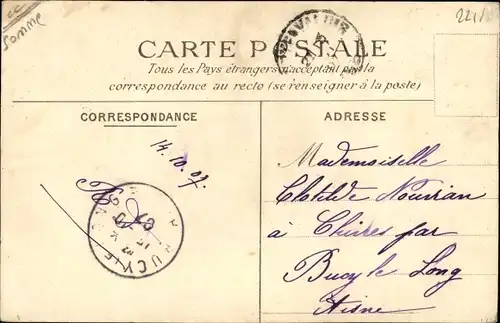 Somme
221
CARTE POSTALE
Tous les Pays étrangers n'acceptant pas la
correspondance au recto (se renseigner à la poste)
CORRESPONDANCE
ADRESSE
14.10.07.
BUCY
Mademoiselle
Clotilde Nouvian
à Chivres par
Bucy le Long
Aisne